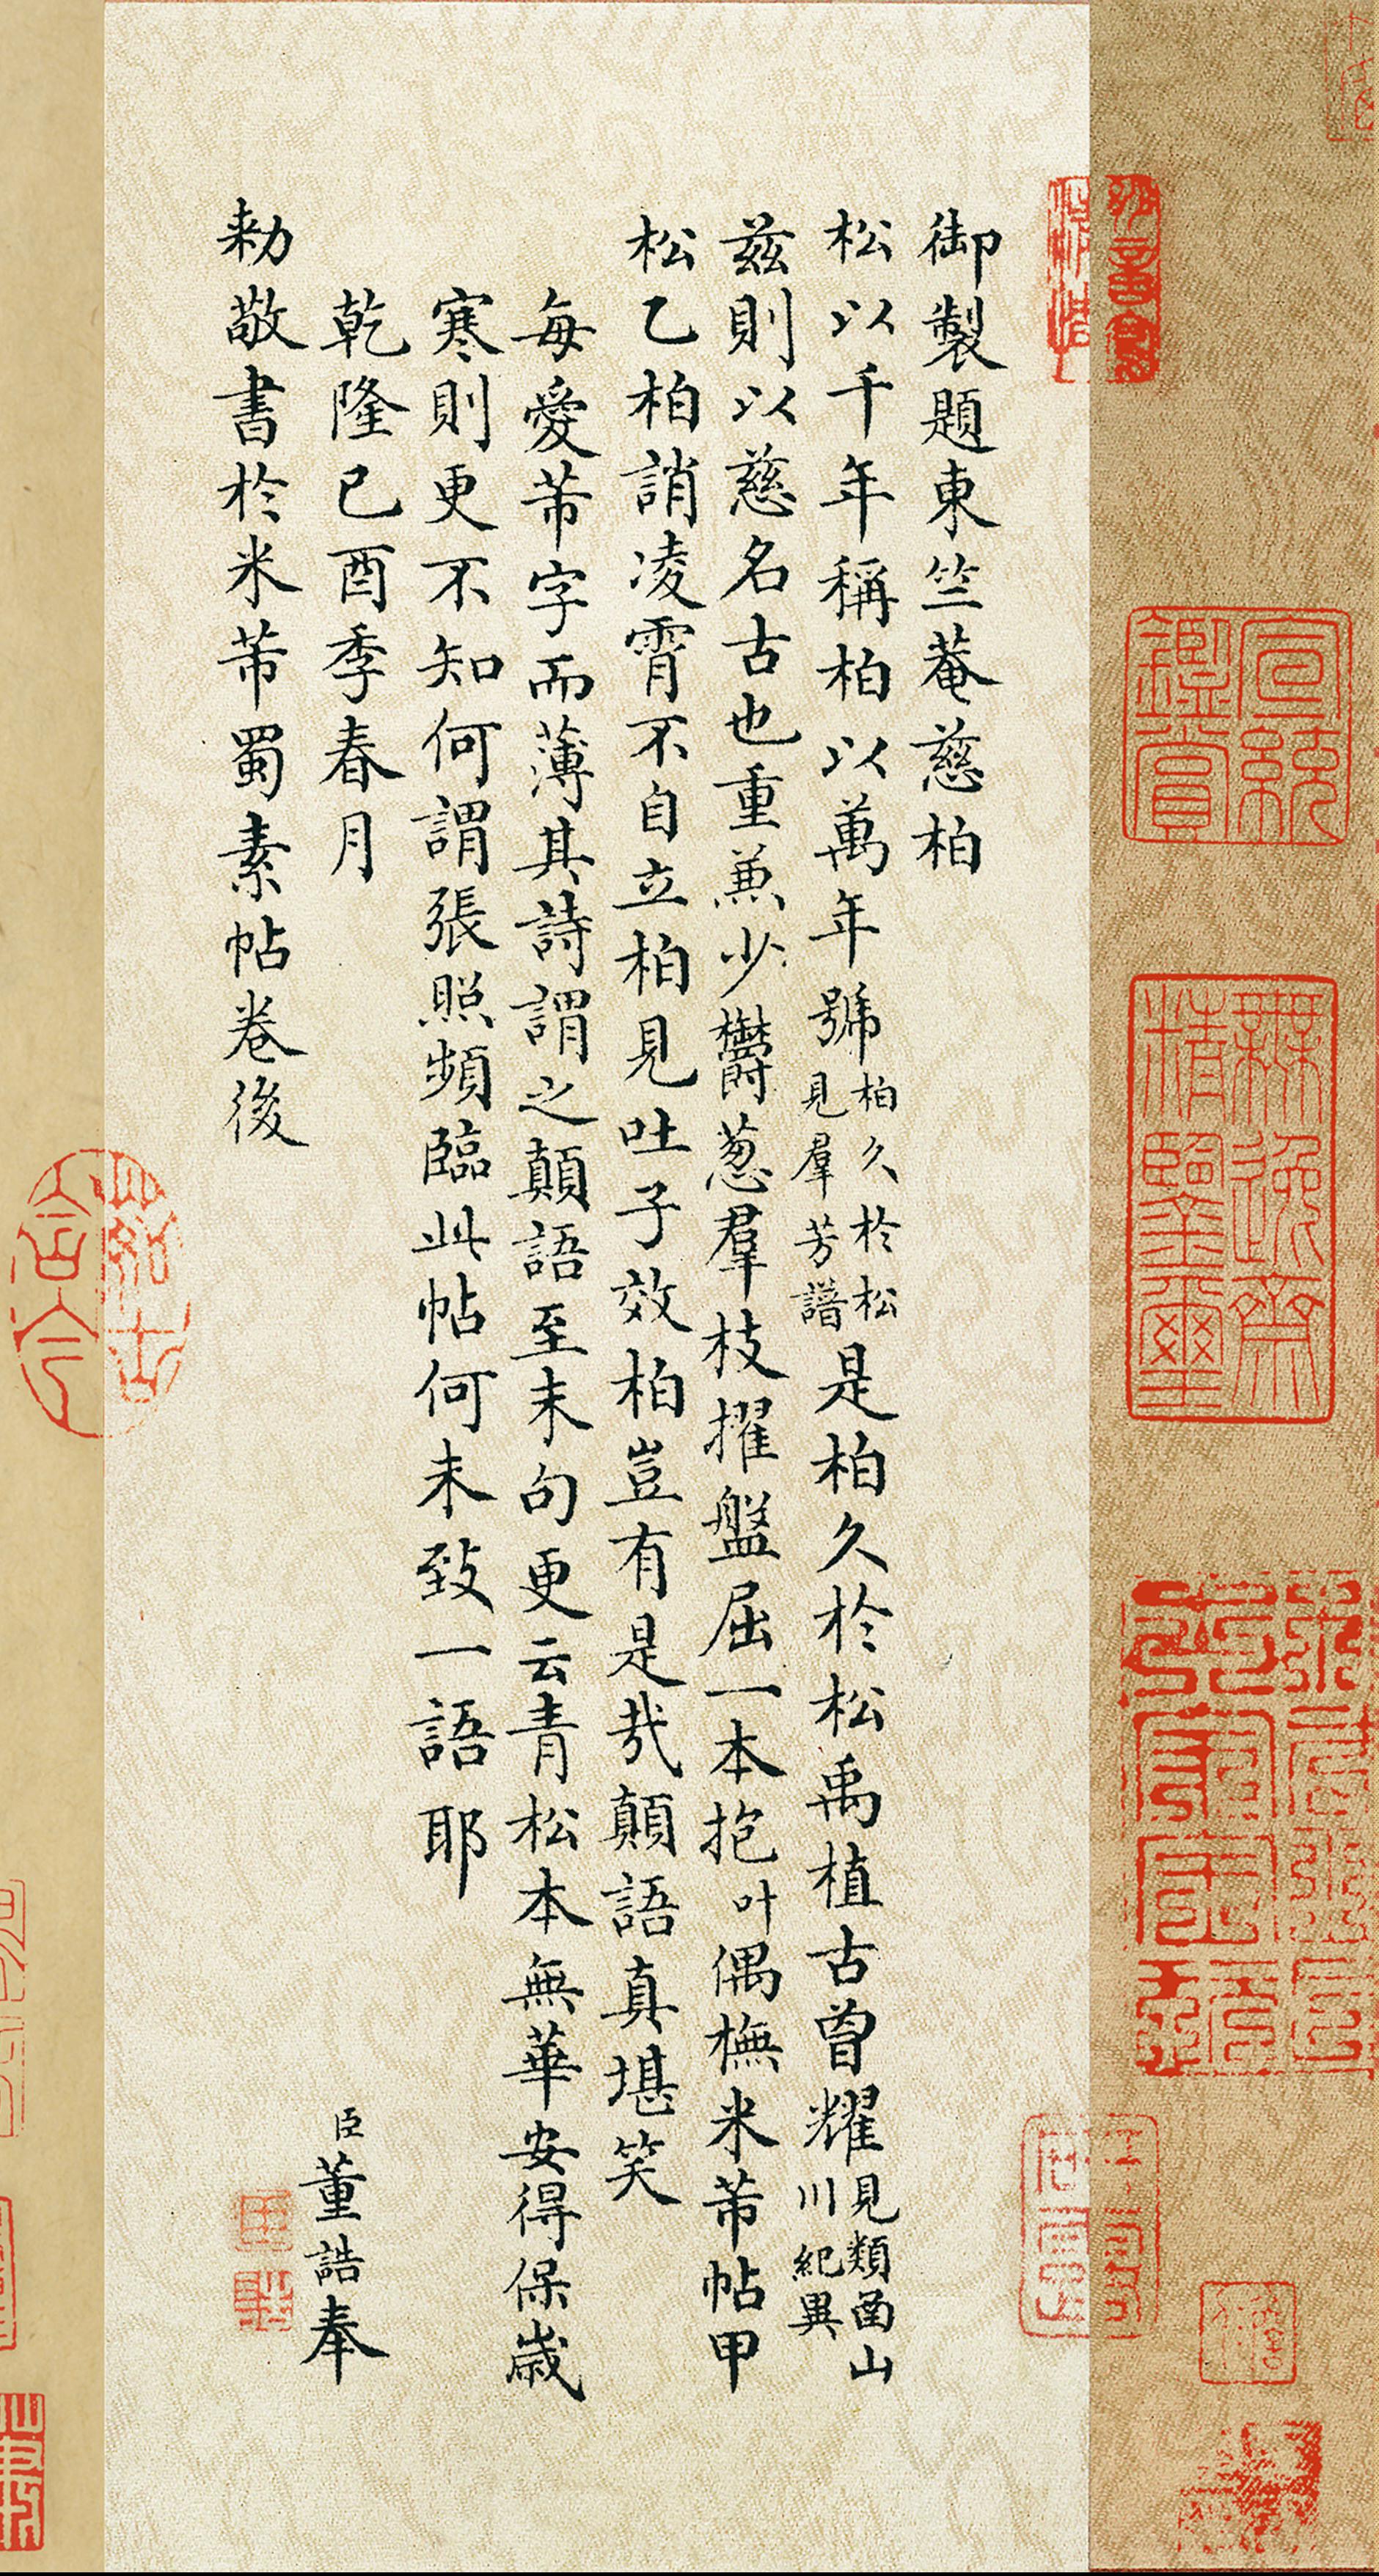 御製題東竺菴慈柏
松以千年稱柏以萬年號柏久於松見羣芳譜是柏久於松禹植古曾耀見類函山川紀異
兹則以慈名古也重兼少欝葱羣枝擢盤屈一本抱叶偶橅米芾帖甲
松乙柏誚凌霄不自立柏見吐子效柏豈有是㢤顛語真堪笑
每愛芾字而薄其詩謂之顛語至末句更云青松本無華安得保歲
寒則更不知何謂張照頻臨此帖何未致一語耶
乾隆已酉季春月
臣董誥奉
勅敬書於米芾蜀素帖卷後
宣統鑑賞
無逸齋精鑒璽